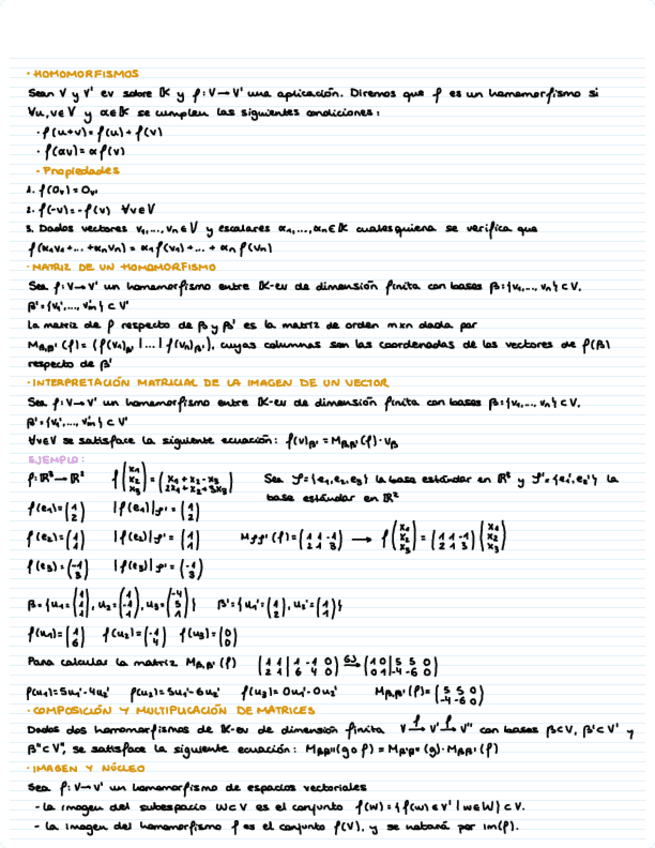 · HOMOMORFISMOS
Sean V y V' ev sobre K y f: V → V' una aplicación. Diremos que f es un homomorfismo si
∀u,v ∈ V y α ∈ K se cumplen las siguientes condiciones:
· f(u+v) = f(u) + f(v)
· f(αv) = α f(v)
· Propiedades
1. f(0ᵥ) = 0ᵥ'
2. f(-v) = -f(v) ∀v ∈ V
3. Dados vectores v₁, ..., vₙ ∈ V y escalares α₁, ..., αₙ ∈ K cualesquiera se verifica que
f(α₁v₁ + ... + αₙvₙ) = α₁ f(v₁) + ... + αₙ f(vₙ)
· MATRIZ DE UN HOMOMORFISMO
Sea f: V → V' un homomorfismo entre K-ev de dimensión finita con bases β = {v₁, ..., vₙ} ⊂ V,
β' = {v₁', ..., vₘ'} ⊂ V'
La matriz de f respecto de β y β' es la matriz de orden mxn dada por
Mβ,β' (f) = (f(v₁)β' | ... | f(vₙ)β'), cuyas columnas son las coordenadas de los vectores de f(β)
respecto de β'
· INTERPRETACIÓN MATRICIAL DE LA IMAGEN DE UN VECTOR
Sea f: V → V' un homomorfismo entre K-ev de dimensión finita con bases β = {v₁, ..., vₙ} ⊂ V,
β' = {v₁', ..., vₘ'} ⊂ V'
∀v ∈ V se satisface la siguiente ecuación: f(v)β' = Mβ,β' (f) · vβ
EJEMPLO:
f: R³ → R² f(x₁ x₂ x₃) = (x₁ + x₂ - x₃ 2x₁ + x₂ + 3x₃) Sea 𝒮 = {e₁, e₂, e₃} la base estándar en R³ y 𝒮' = {e₁', e₂'} la
base estándar en R²
f(e₁) = (1 2) (f(e₁))𝒮' = (1 2)
f(e₂) = (1 1) (f(e₂))𝒮' = (1 1) M𝒮𝒮' (f) = (1 1 -1 2 1 3) → f(x₁ x₂ x₃) = (1 1 -1 2 1 3)(x₁ x₂ x₃)
f(e₃) = (-1 3) (f(e₃))𝒮' = (-1 3)
β = {u₁ = (1 1 1), u₂ = (1 -1 1), u₃ = (-4 5 1)} β' = {u₁' = (1 2), u₂' = (1 1)}
f(u₁) = (1 6) f(u₂) = (-1 4) f(u₃) = (0 0)
Para calcular la matriz Mβ,β' (f) (1 1 | 1 -1 0 2 1 | 6 4 0) GJ → (1 0 | 5 5 0 0 1 | -4 -6 0)
f(u₁) = 5u₁' - 4u₂' f(u₂) = 5u₁' - 6u₂' f(u₃) = 0u₁' - 0u₂' Mβ,β' (f) = (5 5 0 -4 -6 0)
· COMPOSICIÓN Y MULTIPLICACIÓN DE MATRICES
Dados dos homomorfismos de K-ev de dimensión finita V → V' → V'' con bases β ⊂ V, β' ⊂ V' y
β'' ⊂ V'', se satisface la siguiente ecuación: Mββ'' (g o f) = Mβ'β'' (g) · Mβ,β' (f)
· IMAGEN Y NÚCLEO
Sea f: V → V' un homomorfismo de espacios vectoriales
- La imagen del subespacio W ⊂ V es el conjunto f(W) = {f(w) ∈ V' | w ∈ W} ⊂ V.
- La imagen del homomorfismo f es el conjunto f(V), y se notará por Im(f).